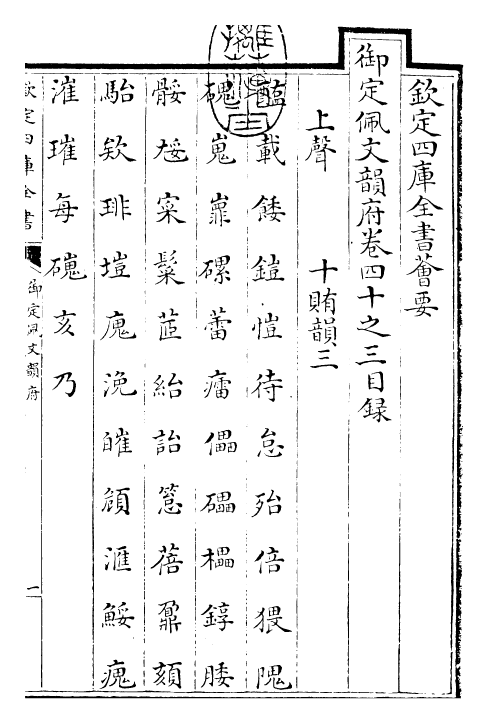 欽定四庫全書薈要
御定佩文韻府卷四十之三目録
上聲 十賄韻三
醢載餧鎧愷待怠殆倍猥隗
磈嵬嶵磥蕾癗儡礧櫑錞腇
骽㞂寀鬕茝紿詒薏蓓鼐頦
駘欸琲塏廆浼皠頠滙鮾瘣
漼璀每磈亥乃
欽定四庫全書 御定佩文韻府 一